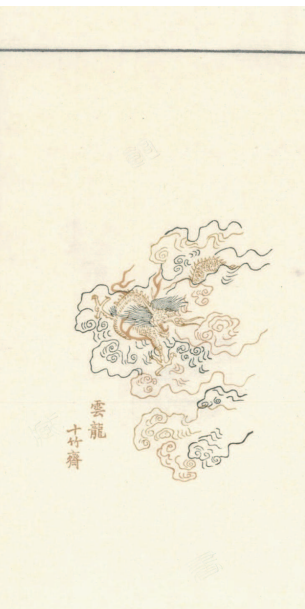 雲龍
十竹齋